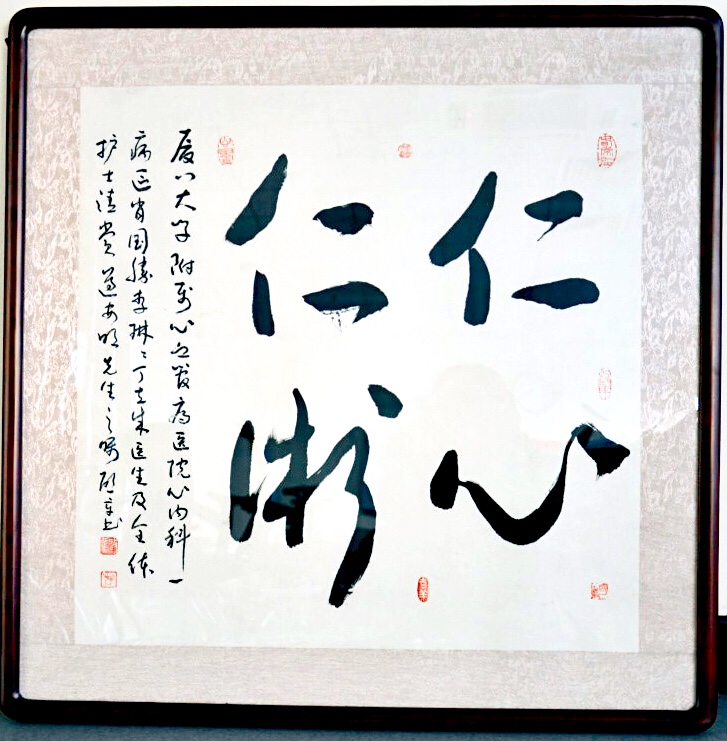 仁心
仁術
厦门大学附属心血管病医院心内科一
病区肖国胜李琳琳丁立成医生及全体
护士清赏 遵安明先生之嘱